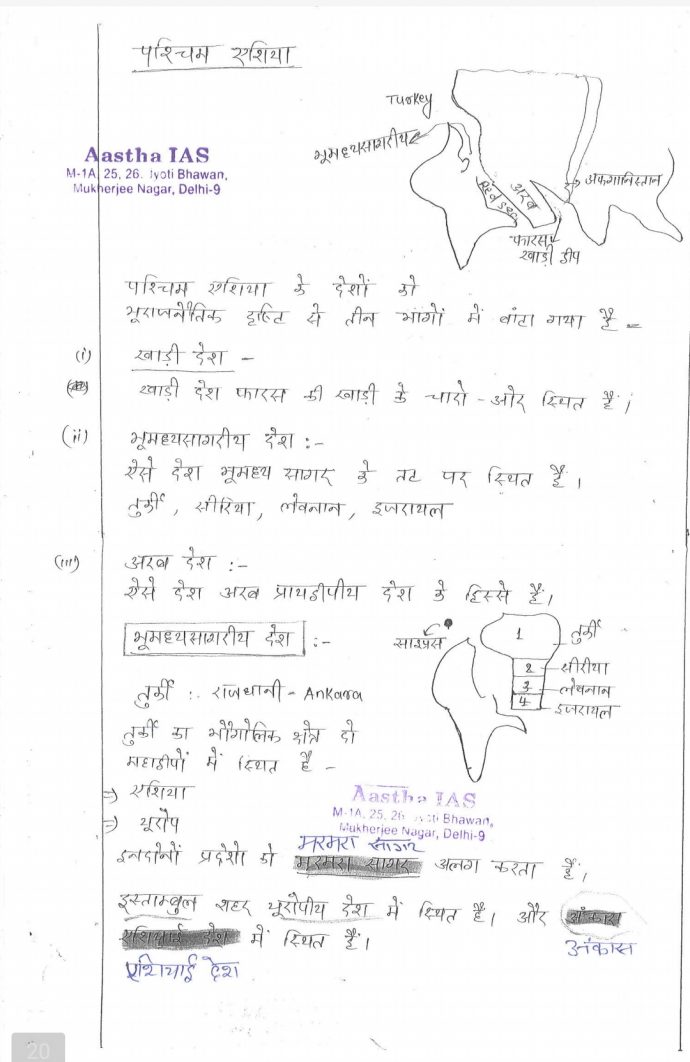 पश्चिम एशिया
Turkey
भूमध्यसागरीय
Aastha IAS
M-1A, 25, 26. Jyoti Bhawan,
Mukherjee Nagar, Delhi-9
Red sea
अरब
अफगानिस्तान
फारस
खाड़ी द्वीप
पश्चिम एशिया के देशों को
भूराजनैतिक दृष्टि से तीन भागों में बांटा गया है -
(i) खाड़ी देश -
खाड़ी देश फारस की खाड़ी के चारो - ओर स्थित हैं।
(ii) भूमध्यसागरीय देश :-
ऐसे देश भूमध्य सागर के तट पर स्थित हैं।
तुर्की, सीरिया, लेबनान, इजरायल
(iii) अरब देश :-
ऐसे देश अरब प्रायद्वीपीय देश के हिस्से हैं।
भूमध्यसागरीय देश :-
साइप्रस
1 तुर्की
2 सीरीया
3 लेबनान
4 इजरायल
तुर्की :. राजधानी - Ankara
तुर्की का भौगोलिक क्षेत्र दो
महाद्वीपों में स्थित है -
⇒ एशिया
⇒ यूरोप
Aastha IAS
M-1A, 25, 26 Bhawan,
Mukherjee Nagar, Delhi-9
मरमरा सागर
इनदोनों प्रदेशो को मरमरा सागर अलग करता हैं,
इस्ताम्बुल शहर यूरोपीय देश में स्थित है। और अंकारा
एशियाई देश में स्थित हैं।
अंकारा
एशियाई देश
20